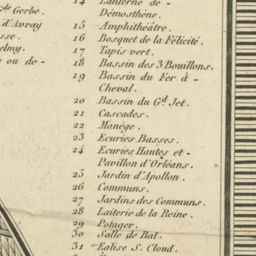 de Gerbe.
d'Avray
asse.
elmy.
s ou de-
14 Lanterne de-
Démosthène.
15 Amphithéâtre.
16 Bosquet de la Félicité.
17 Tapis vert.
18 Bassin des 3 Bouillons.
19 Bassin du Fer à-
Cheval.
20 Bassin du Gd. Jet.
21 Cascades.
22 Manège.
23 Ecuries Basses.
24 Ecuries Hautes et-
Pavillon d'Orléans.
25 Jardin d'Apollon.
26 Communs.
27 Jardins des Communs.
28 Laiterie de la Reine.
29 Potager.
30 Salle de Bal.
31 Eglise S. Cloud.